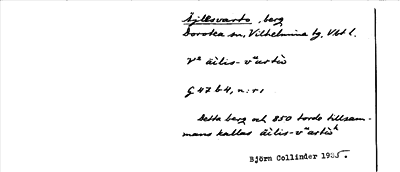 Äjlesvarto, berg
Dorotea sn, Vilhelmina tg, Vbt l.
V² äilis-v"artò
G 47 b4, n:r 1
Detta berg och 850 tords tillsam-
mans kallas äilis-v"artòh
Björn Collinder 1935.